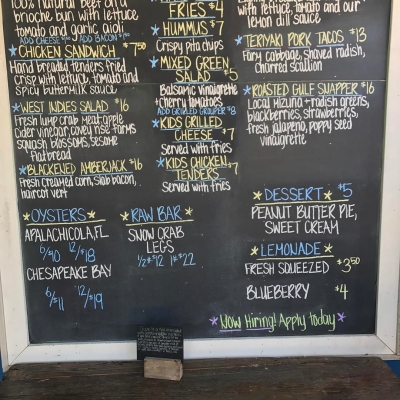 100% natural beef on a
brioche bun with lettuce
tomato and garlic aioli
ADD CHEESE ADD BACON
*CHICKEN SANDWICH * $7.50
Hand breaded tenders fried
crisp with lettuce, tomato and
spicy buttermilk sauce
*WEST INDIES SALAD $16
Fresh lump crab meat, apple
cider vinegar, covey rise farms
squash blossoms, sesame
flatbread
*BLACKENED AMBERJACK $16
Fresh creamed corn, slab bacon,
haricot vert
*OYSTERS*
APALACHICOLA, FL
6/$10 12/$18
CHESAPEAKE BAY
6/$11 12/$19
FRIES $4
*HUMMUS* $7
Crispy pita chips
*MIXED GREEN
SALAD $5
Balsamic vinaigrette
+ cherry tomatoes
ADD GRILLED GROUPER $8
*KIDS GRILLED
CHEESE $7
Served with fries
*KIDS CHICKEN
TENDERS $7
Served with fries
*RAW BAR*
SNOW CRAB
LEGS
1/2# $12 1# $22
with lettuce, tomato and our
lemon dill sauce
*TERIYAKI PORK TACOS $13
Farv cabbage, shaved radish,
charred scallion
*ROASTED GULF SNAPPER $16
Local mizuna + radish greens,
blackberries, strawberries,
fresh jalapeno, poppy seed
vinaigrette
*DESSERT* $5
PEANUT BUTTER PIE,
SWEET CREAM
*LEMONADE*
FRESH SQUEEZED $3.50
BLUEBERRY $4
*Now Hiring! Apply today*